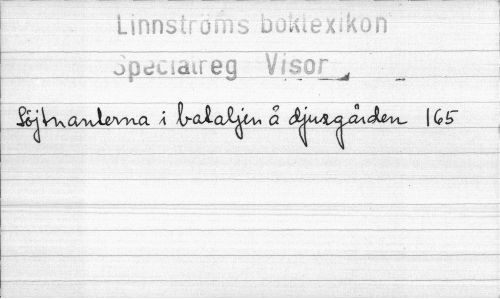 Linnströms boklexikon
Specialreg Visor
Löjtnanterna i bataljen å djurgården 165